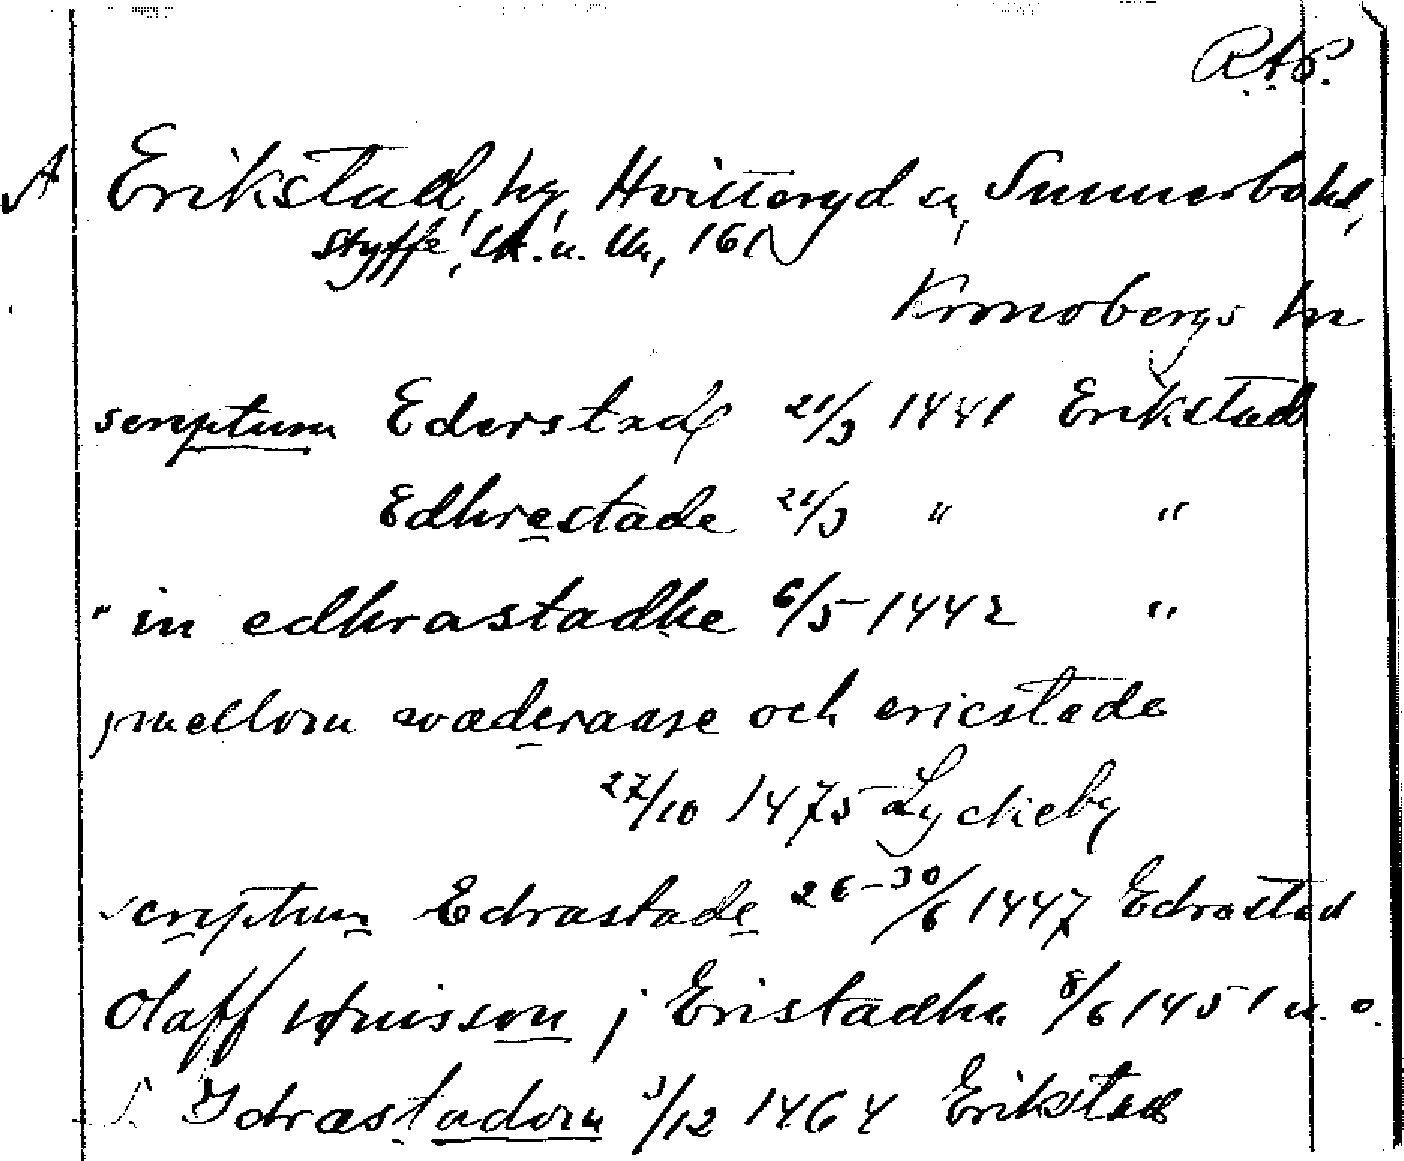 RAP.
A Erikstad, hg, Hvitteryd sn, Sunnerbohd,
Styffe, Sk. u. Un, 161
Kronobergs län
scriptum Ederstad 21/3 1441 Erikstad
Edhrestade 21/3 " "
" in edhrastadhe 6/5 1442 "
j mellom wæderaase och ericstade
27/10 1475 Lyckeby
scriptum Edrastade 26-30/6 1447 Edrastad
Olaff j Eristadhe 8/6 1451 u. o.
Ydræstadom 3/12 1464 Erikstad